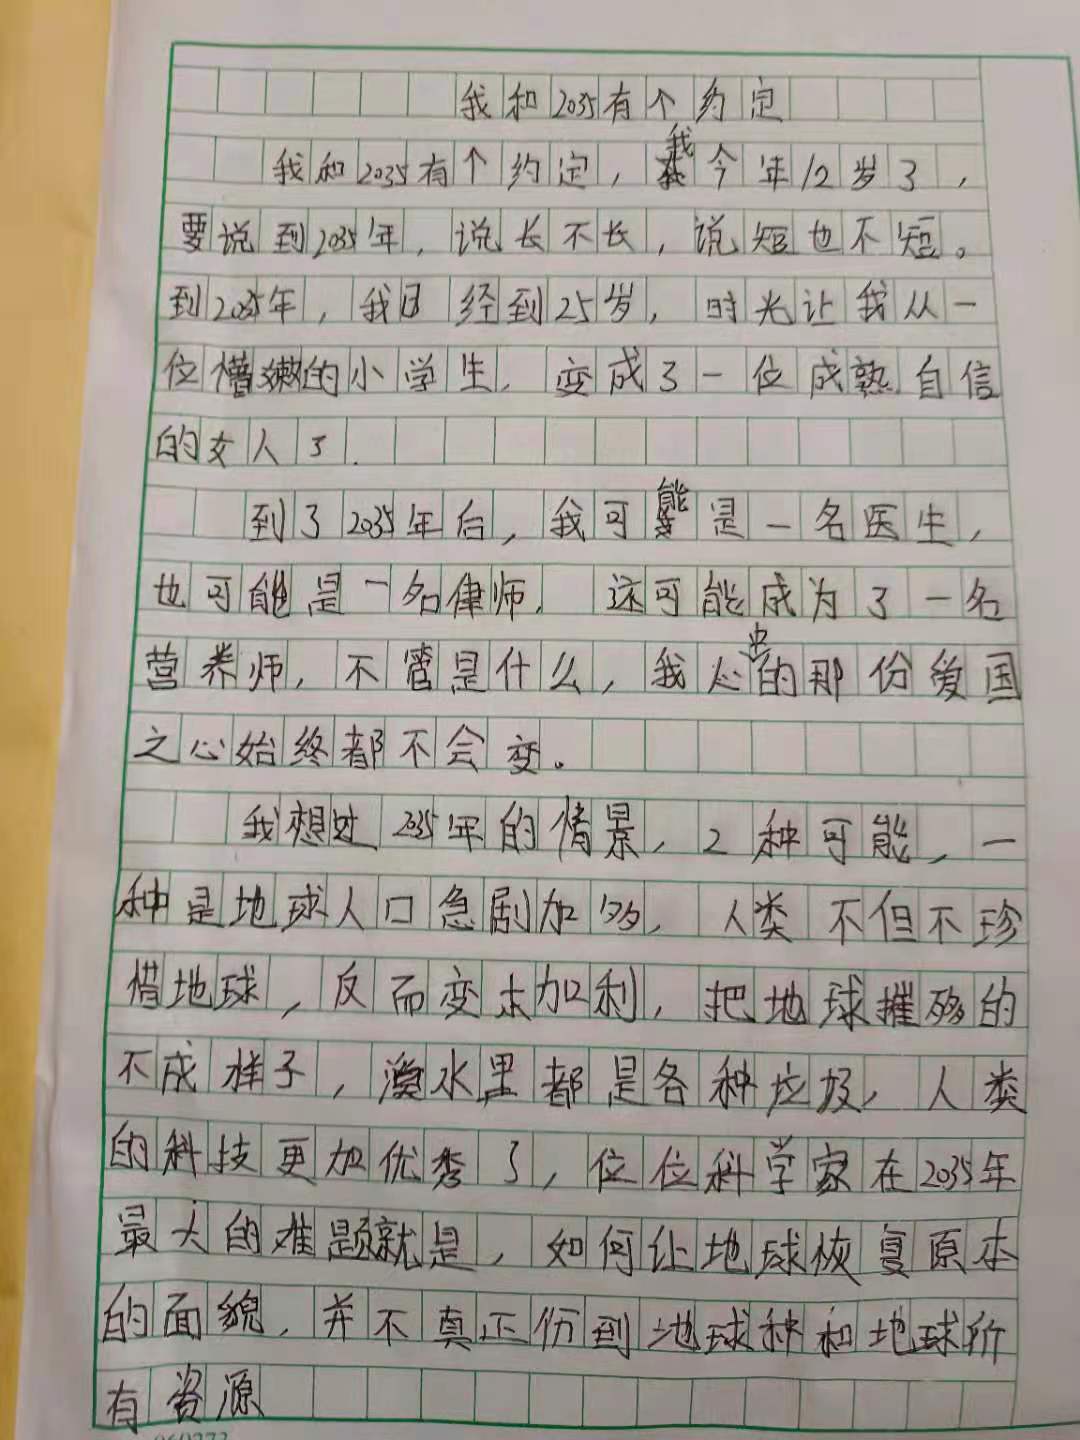 我和2035有个约定
我和2035有个约定，我今年12岁了，
要说到2035年，说长不长，说短也不短。
到2035年，我已经到25岁，时光让我从一
位懵嫩的小学生，变成了一位成熟自信
的女人了.
到了2035年后，我可能是一名医生，
也可能是一名律师.还可能成为了一名
营养师，不管是什么，我心中的那份爱国
之心始终都不会变。
我想过2035年的情景，2种可能，一
种是地球人口急剧加多，人类不但不珍
惜地球，反而变本加利，把地球摧残的
不成样子，海水里都是各种垃圾，人类
的科技更加优秀了，位位科学家在2035年
最大的难题就是，如何让地球恢复原本
的面貌，并不真正份到地球种和地球所
有资源